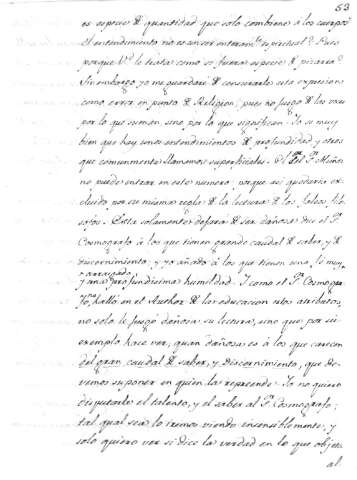 53
es especie de quantidad que solo combiene a los cuerpos
El entendimiento no es un ser enteramte espiritual? Pues
porque le trata como si fuera especie de pizarra?
Sin embargo yo me guardaré de censurarle esta expresion
como error en punto de Religion, pues no juzgo de las voces
por lo que suenan, sino por lo que significan. Yo se muy
bien que hay unos entendimientos de profundidad y otros
que comunmente llamamos superficiales. El del P. Muñoz
no puede entrar en este numero porque asi quedaria ex-
cluido por su misma regla de la lectura de los falsos filo-
sofos. Esta solamente dejara de ser dañosa dice el P.
Cosmografo à los que tienen grande caudal de saber, y de
discernimiento; y yo añado à los que tienen una fe muy
arraygada,
y una profundisima humildad. I como el P. Cosmogra-
fo hallo en el Author de la educacion estos atributos,
no solo le juzgó dañosa su lectura, sino que por su
exemplo hace ver, quan dañosa es à los que carecen
del gran caudal de saber, y discernimiento, que de-
vemos suponer en quien la reprende. Io no quiero
disputarle el talento, y el saber al P. Cosmografo;
tal qual sea lo iremos viendo insensiblemente, y
solo quiero ver si dice la verdad en lo que objeta
al